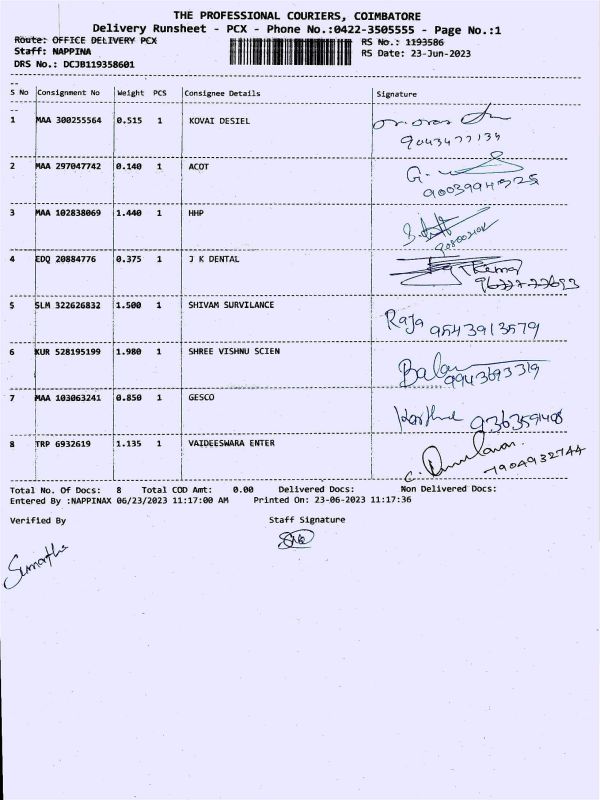 THE PROFESSIONAL COURIERS, COIMBATORE
Delivery Runsheet - PCX - Phone No.:0422-3505555 - Page No.:1
Route: OFFICE DELIVERY PCX
RS No.: 1193586
Staff: NAPPINA
RS Date: 23-Jun-2023
DRS No.: DCJB119358601
S No Consignment No Weight PCS Consignee Details Signature
1 MAA 300255564 0.515 1 KOVAI DESIEL
9043477139
2 MAA 297047742 0.140 1 ACOT
G.
3 MAA 102838069 1.440 1 HHP
4 EDQ 20884776 0.375 1 J K DENTAL
5 SLM 322626832 1.500 1 SHIVAM SURVILANCE
Raja 9543913579
6 KUR 528195199 1.980 1 SHREE VISHNU SCIEN
Balan
9943693319
7 MAA 103063241 0.850 1 GESCO
8 TRP 6932619 1.135 1 VAIDEESWARA ENTER
7904932744
Total No. Of Docs: 8 Total COD Amt: 0.00 Delivered Docs: Non Delivered Docs:
Entered By :NAPPINAX 06/23/2023 11:17:00 AM Printed On: 23-06-2023 11:17:36
Verified By Staff Signature
Sumathi